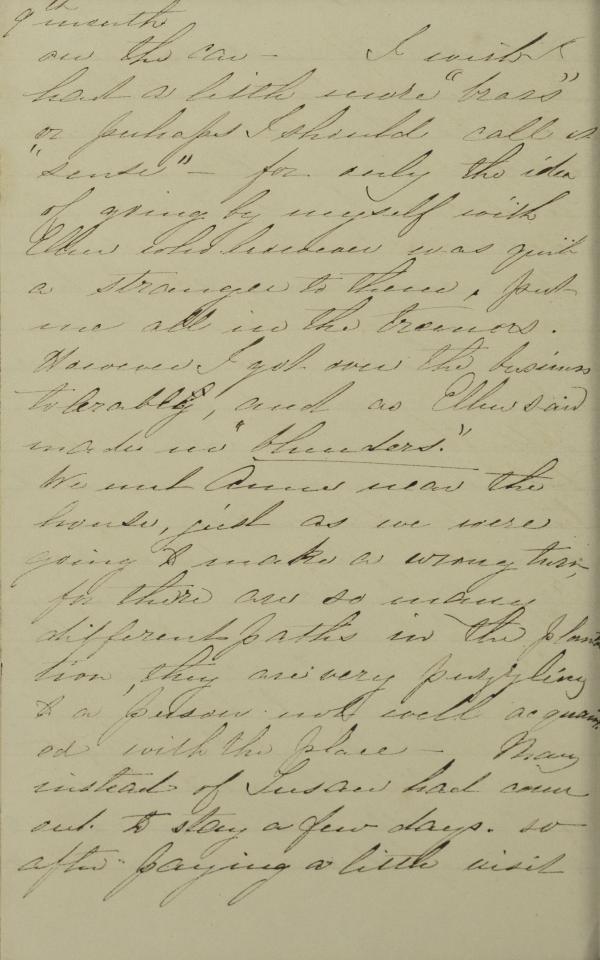 9th month
on the car - I wish I
had a little more "brass"
or perhaps I should call it
"sense" - for only the idea
of going by myself with
Ellen who however was quite
a stranger to them, put
me all in the tremors.
However I got over the business
tolerably, and as Ellen said
made no "blunders."
We met Anne near the
house, just as we were
going to make a wrong turn,
for there are so many
different paths in the planta
tion, they are very puzzling
to a person not well acquaint
ed with the place - Mary
instead of Susan had come
out to stay a few days. so
after paying a little visit